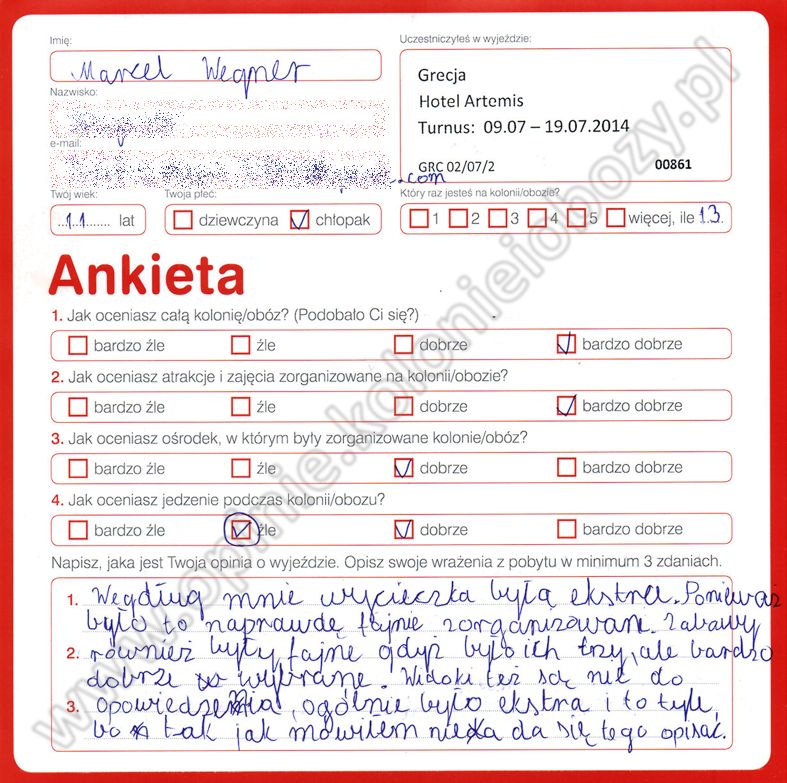 Imię:
Marcel Wegner
Nazwisko:
e-mail:
.com
Twój wiek:
11 lat
Twoja płeć:
dziewczyna chłopak
Uczestniczyłeś w wyjeździe:
Grecja
Hotel Artemis
Turnus: 09.07 – 19.07.2014
GRC 02/07/2 00861
Który raz jesteś na kolonii/obozie?
1 2 3 4 5 więcej, ile 13
Ankieta
1. Jak oceniasz całą kolonię/obóz? (Podobało Ci się?)
bardzo źle źle dobrze bardzo dobrze
2. Jak oceniasz atrakcje i zajęcia zorganizowane na kolonii/obozie?
bardzo źle źle dobrze bardzo dobrze
3. Jak oceniasz ośrodek, w którym były zorganizowane kolonie/obóz?
bardzo źle źle dobrze bardzo dobrze
4. Jak oceniasz jedzenie podczas kolonii/obozu?
bardzo źle źle dobrze bardzo dobrze
Napisz, jaka jest Twoja opinia o wyjeździe. Opisz swoje wrażenia z pobytu w minimum 3 zdaniach.
1. Wegdług mnie wycieczka byłą ekstra. Ponieważ
było to naprawdę fajnie zorganizowane. Zabawy
2. również były fajne gdyż było ich trzy, ale bardzo
dobrze wybrane. Widoki też są nie do
3. opowiedzenia, ogólnie było ekstra i to tyle,
bo tak jak mówiłem nie da się tego opisać.
www.opinie.kolonieiobozy.pl